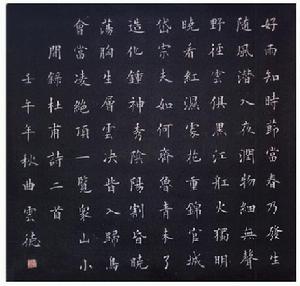 好雨知時節當春乃發生
隨風潛入夜潤物細無聲
野徑雲俱黑江船火獨明
曉看紅濕處花重錦官城
岱宗夫如何齊魯青未了
造化鍾神秀陰陽割昏曉
蕩胸生層雲決眥入歸鳥
會當凌絕頂一覽眾山小
間錄杜甫詩二首
壬午年秋曲雲德